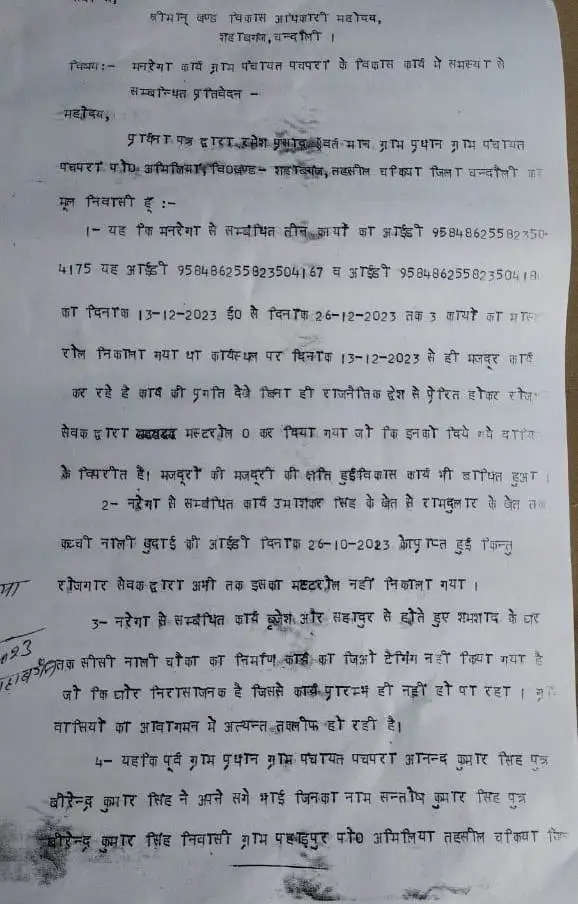 श्रीमान् खण्ड विकास अधिकारी महोदय,
शहाबगंज, चन्दौली ।
विषय:- मनरेगा कार्य ग्राम पंचायत पचपरा के विकास कार्य में समस्या से
सम्बन्धित प्रतिवेदन -
महोदय,
प्रार्थना पत्र द्वारा रमेश प्रसाद वर्तमान ग्राम प्रधान ग्राम पंचायत
पचपरा पो0 अमिलिया, वि0खण्ड- शहाबगंज, तहसील चकिया जिला चन्दौली का
मूल निवासी हूं :-
1- यह कि मनरेगा से सम्बंधित तीन कार्यो का आईडी 958486255823504
4175 यह आईडी 958486255823504167 व आईडी 95848625582350418
का दिनांक 13-12-2023 ई0 से दिनांक 26-12-2023 तक 3 कार्यो का मास्ट
रोल निकाला गया था कार्यस्थल पर दिनांक 13-12-2023 से ही मजदूर कार्य
कर रहे है कार्य की प्रगति देखे बिना ही राजनैतिक द्वेश से प्रेरित होकर रोज
सेवक द्वारा मस्टरोल 0 कर दिया गया जो कि इनको दिये गये दायि
के विपरीत है। मजदूरों की मजदूरी की क्षति हुई विकास कार्य भी बाधित हुआ ।
2- नरेगा से सम्बंधित कार्य उमाशंकर सिंह के खेत से रामदुलार के खेत तक
कच्ची नाली खुदाई की आईडी दिनांक 26-10-2023 को प्राप्त हुई किन्तु
रोजगार सेवक द्वारा अभी तक इसका मस्टरोल नहीं निकाला गया ।
3- नरेगा से सम्बंधित कार्य बृजेश और सहादुर से होते हुए शमशाद के घर
तक सीसी नाली चौका का निर्माण कार्य का जिओ टैगिंग नहीं किया गया है
जो कि घोर निरासाजनक है जिससे कार्य प्रारम्भ ही नहीं हो पा रहा । ग्रा
वासियों का आवागमन में अत्यन्त तकलीफ हो रही है।
4- यहकि पूर्व ग्राम प्रधान ग्राम पंचायत पचपरा आनन्द कुमार सिंह पुत्र
बीरेन्द्र कुमार सिंह ने अपने सगे भाई जिनका नाम सन्तोष कुमार सिंह पुत्र
बीरेन्द्र कुमार सिंह निवासी ग्राम पहाड़पुर पो0 अमिलिया तहसील चकिया जि